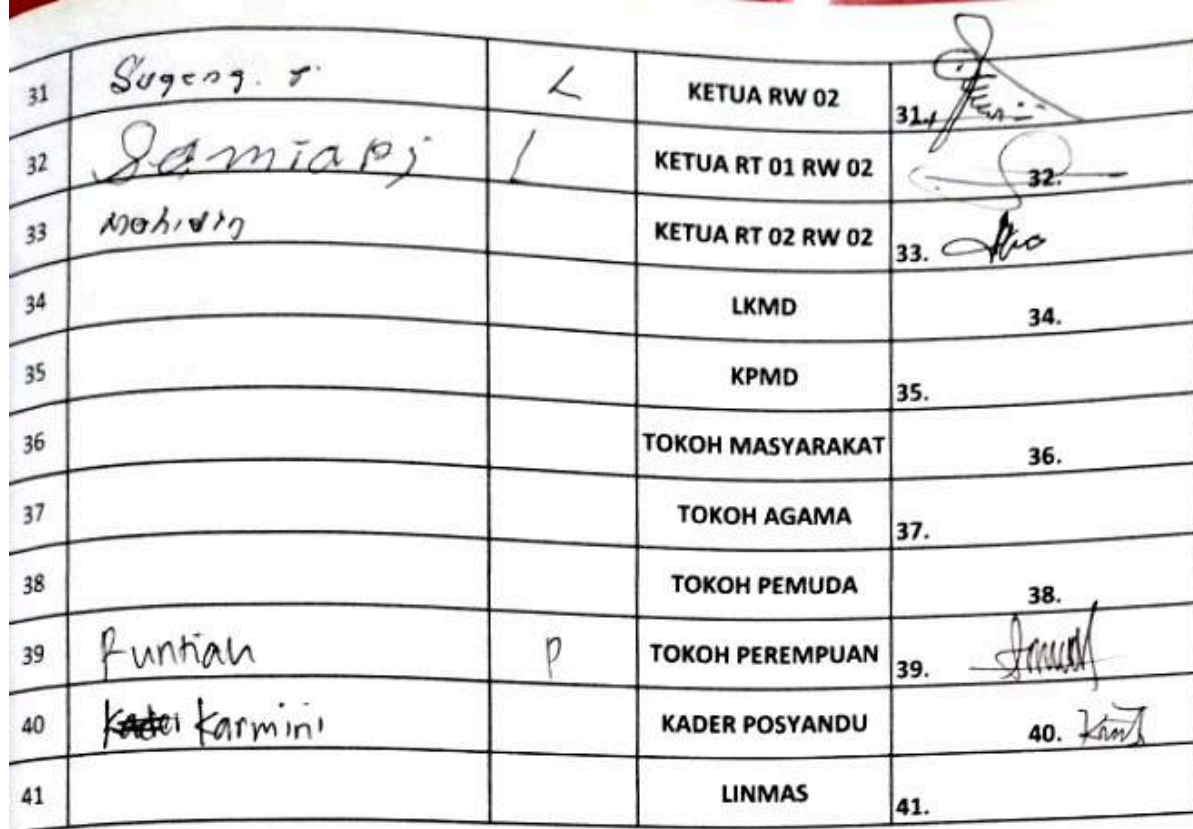 31 Sugeng. r. L KETUA RW 02 31.
32 L KETUA RT 01 RW 02 32.
33 Mohidin KETUA RT 02 RW 02 33.
34 LKMD 34.
35 KPMD 35.
36 TOKOH MASYARAKAT 36.
37 TOKOH AGAMA 37.
38 TOKOH PEMUDA 38.
39 Puntiah P TOKOH PEREMPUAN 39.
40 Karmini KADER POSYANDU 40.
41 LINMAS 41.